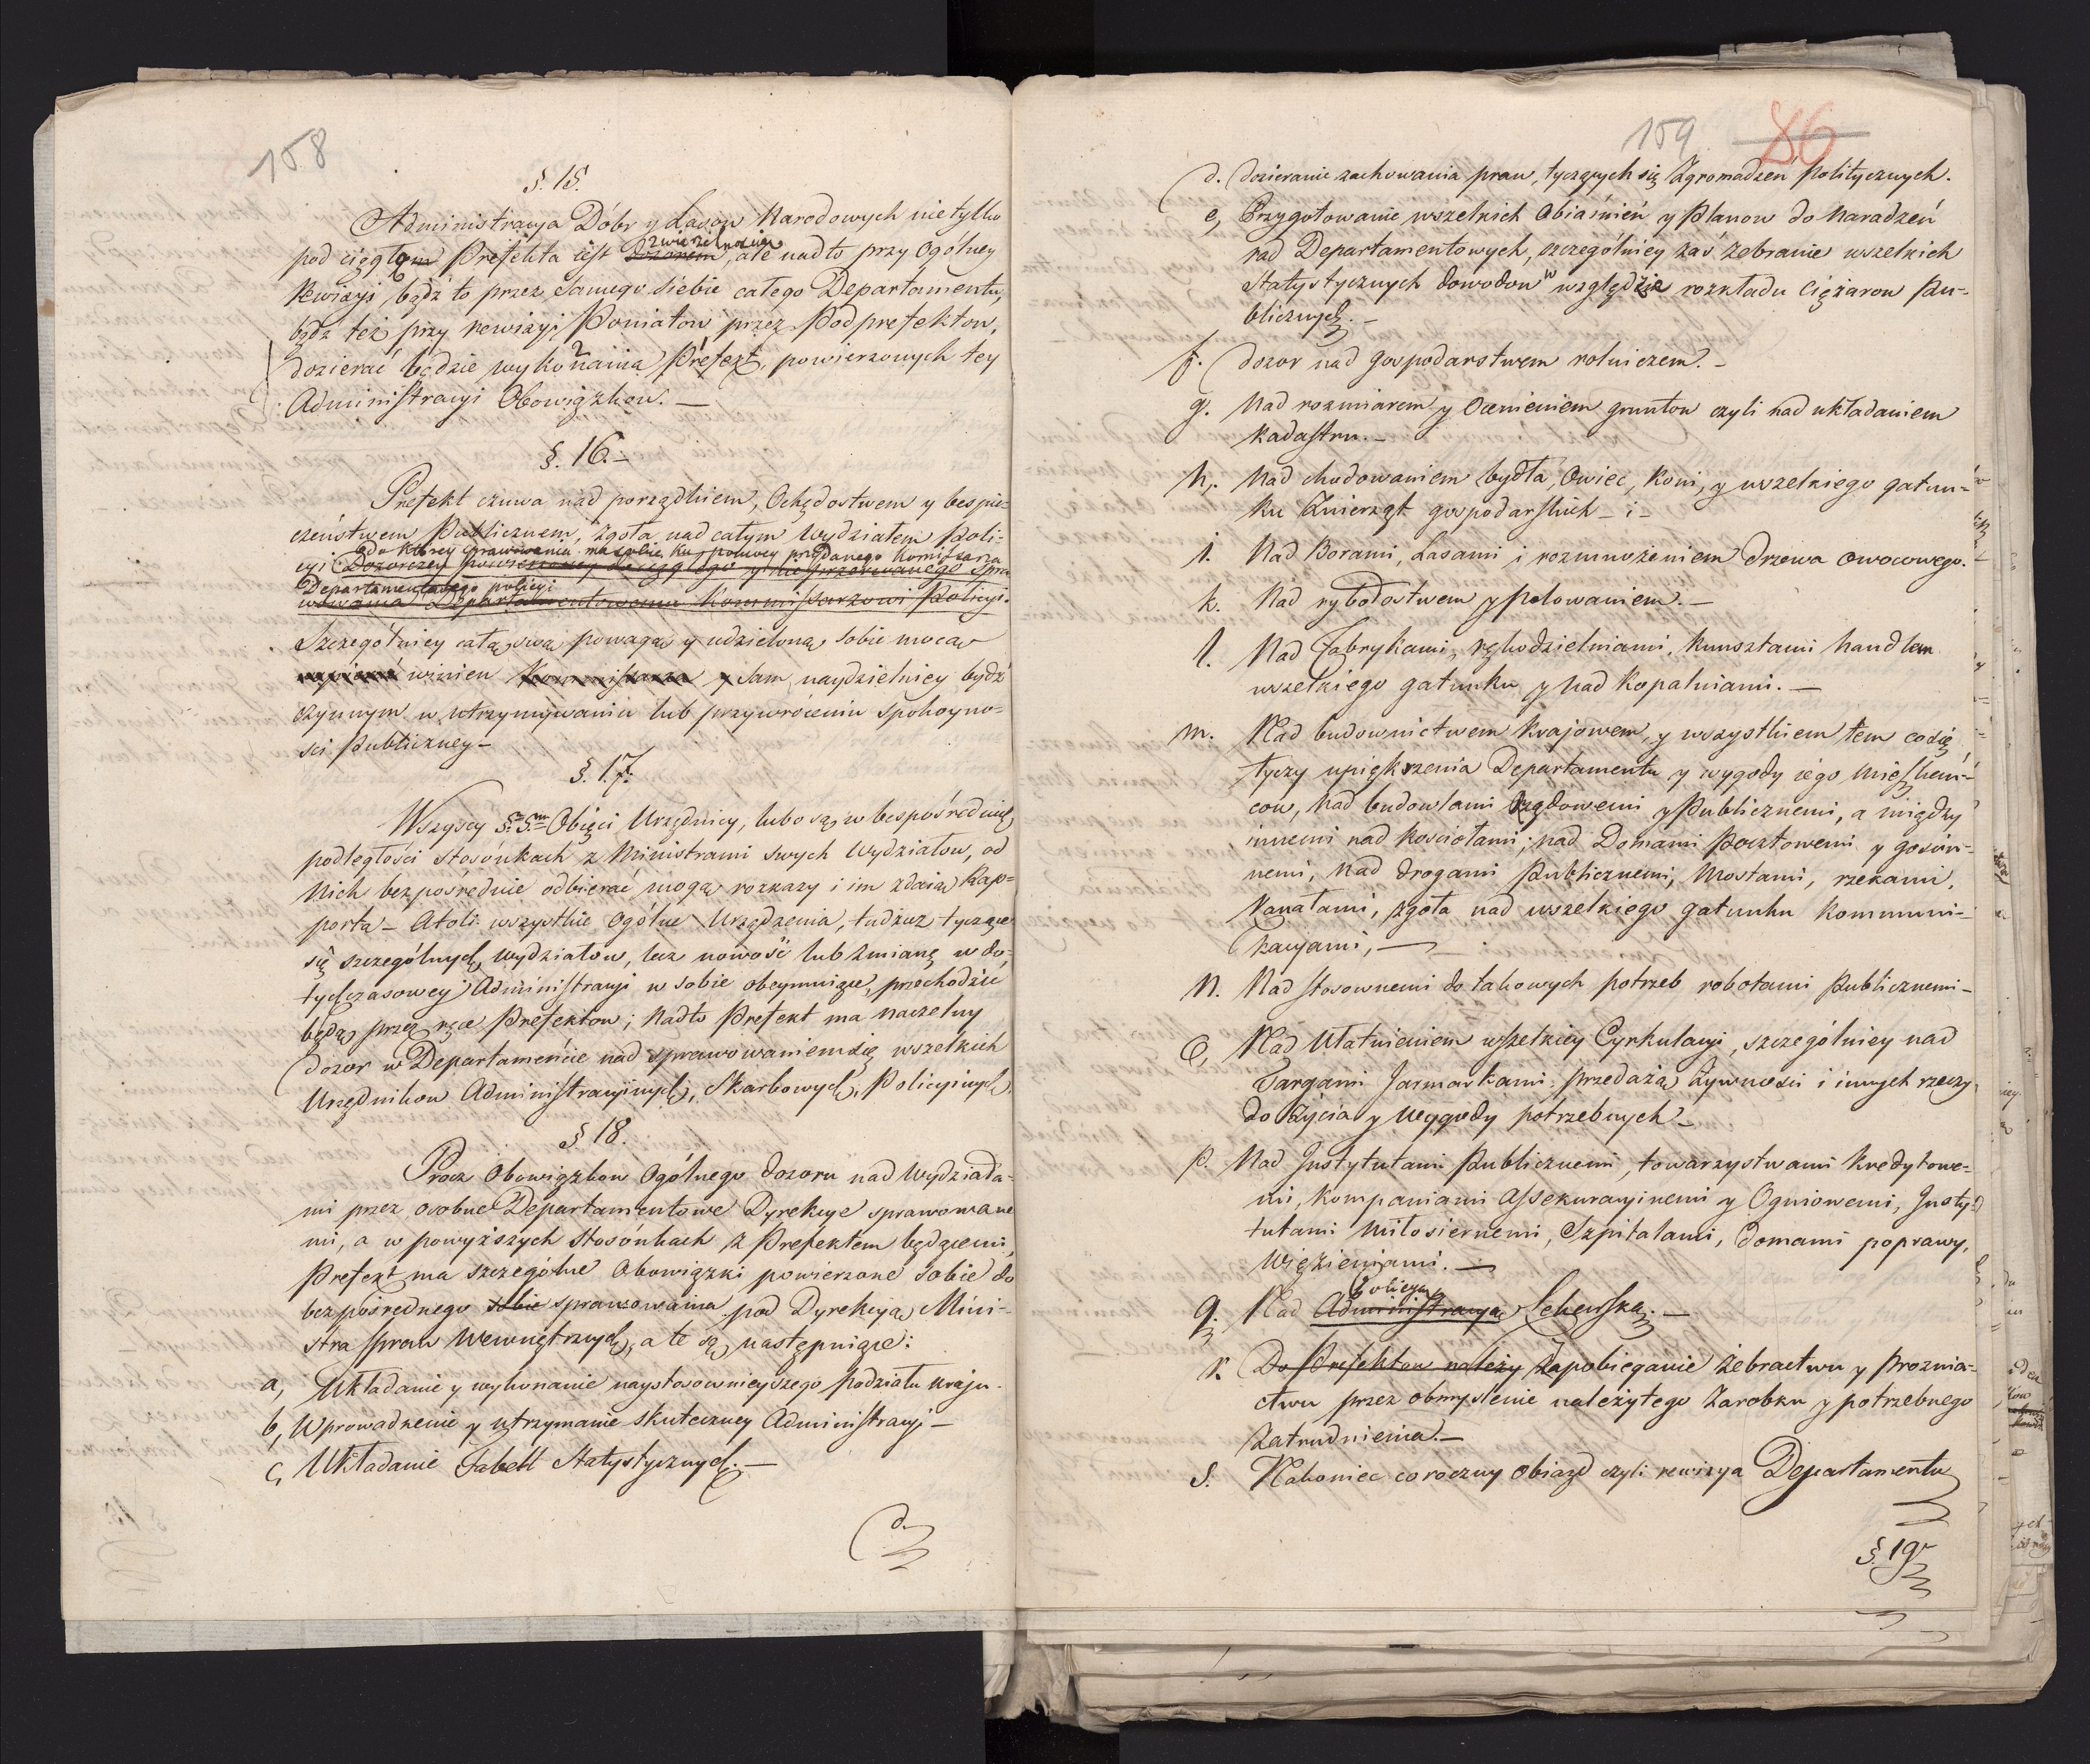 158
§. 15.
Administracya Dóbr y Lasow Narodowych nie tylko
zwierzchnością
pod ciągłym Prefekta iest dozorem, ale nadto przy Ogólney
Rewizyi bądź to przez Samego Siebie całego Departamentu,
bądz też przy rewizyi Powiatow przez Podprefektow,
dozierać będzie wykonania Prefekt, powierzonych tey
Administracyi Obowiązkow. —
§. 16. —
Prefekt czuwa nad porządkiem, Ochędostwem y bespie-
czeństwem Publicznem, zgoła nad całym Wydziałem Poli-
do ktorey sprawowania ma sobie ku pomocy przydanego Komissarza
cyi Dozorczey powierzoney do ciągłego y nie przerwanego spra
Departamentowego policyi
wowania Departamentowemu Kommissarzowi Policyi.
Szczególniey całą swą powagą y udzieloną sobie mocą
wspierać winien Kommissarza y Sam naydzielniey bydź
czynnym w utrzymywaniu lub przywróceniu Spokoyno-
sci Publiczney —
§. 17.
Wszyscy §. 5m Obięci Urzędnicy, lubo są w bespośredniéy
podległości Stosónkach z Ministrami swych Wydziałow, od
Nich bezpośrednie odbierać mogą rozkazy i im zdaią Rap-
porta — Atoli wszystkie Ogólne Urządzenia, tudzież tyczące
się szczególnych Wydziałow, lecz nowość lub Zmianę w do-
tychczasowey Administracyi w sobie obeymuiące, przechodzić
będą przez ręce Prefektow; Nadto Prefekt ma naczelny
dozor w Departamencie nad sprawowaniem się wszelkich
Urzędnikow Administracyinych, Skarbowych, Policyinych.
§ 18.
Procz Obowiązkow Ogólnego dozoru nad Wydziała-
mi przez osobne Departamentowe Dyrekcye sprawowane
mi, a w powyższych Stosónkach z Prefektem będącemi,
Prefekt ma szczególne Obowiązki powierzone Sobie do
bezpośrednego sobie sprawowania pod Dyrekcyą Mini-
stra Spraw Wewnętrznych, a te są następuiące:
a, Układanie y wykonanie naystosownieyszego podziału kraju.
b, Wprowadzenie y utrzymanie skuteczney Administracyi —
c, Układanie Tabell Statystycznych. —
d.
159 86
d. dozieranie zachowania praw, tyczących się Zgromadzeń Politycznych.
e, Przygotowanie wszelkich Obiaśnień y Planow do Naradzeń
rad Departamentowych, szczególniey zaś Zebranie wszelkich
Statystycznych dowodow w względzie rozkładu Ciężarow Pu-
blicznych. —
f. dozor nad gospodarstwem rolniczem. —
g. Nad rozmiarem y Ocenieniem gruntow czyli nad układaniem
Kadastru. —
h. Nad chodowaniem bydła, Owiec, Koni, y wszelkiego gatun-
ku Zwierząt gospodarskich — i —
i. Nad Borami, Lasami i rozmnożeniem Drzewa Owocowego.
k. Nad rybołostwem y polowaniem. —
l. Nad Fabrykami, rękodzielniami, Kunsztami handlem
wszelkiego gatunku y Nad Kopalniami. —
m. Nad budownictwem Krajowem, y wszystkiem tem co się
tyczy upiękrzenia Departamentu y wygody iego Mieszkań-
cow, Nad budowlami Rządowemi y Publicznemi, a między
innemi nad Kosciołami; nad Domami Pocztowemi y gosćin-
nemi, Nad drogami Publicznemi, Mostami, rzekami,
Kanałami, zgoła nad wszelkiego gatunku Kommuni-
kacyami, —
n. Nad stosownemi do takowych potrzeb robotami Publicznemi —
O, Nad Ułatwieniem wszelkiey Cyrkulacyi, szczególniey nad
Targami Jarmarkami, przedażą Żywnosci i innych rzeczy
do Życia y Wygody potrzebnych —
p. Nad Instytutami Publicznemi, towarzystwami Kredytowe-
mi, Kompaniami Assekuracyinemi y Ogniowemi, Insty-
tutami Miłosiernemi, Szpitalami, domami poprawy,
Więzieniami. —
Policyą
q. Nad Administracyą Lekarską. —
r. Do Prefektow należy Zapobieganie żebractwu y Proznia-
ctwu przez obmyslenie należytego Zarobku y potrzebnego
Zatrudnienia. —
s. Nakoniec coroczny Obiazd czyli rewizya Departamentu
§. 19.